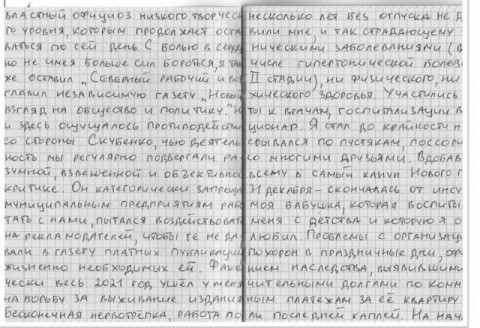 ВЛАСТНЫЙ ОФИЦИОЗ НИЗКОГО ТВОРЧЕСК
ГО УРОВНЯ, КОТОРЫМ ПРОДОЛЖАЕТ ОСТА
ВАТЬСЯ ПО СЕЙ ДЕНЬ. С БОЛЬЮ В СЕРДЦ
НО НЕ ИМЕЯ БОЛЬШЕ СИЛ БОРОТЬСЯ, Я ТА
ЖЕ ОСТАВИЛ „СЕВЕРНЫЙ РАБОЧИЙ И ВОЗ
ГЛАВИЛ НЕЗАВИСИМУЮ ГАЗЕТУ „НОВЫЙ
ВЗГЛЯД НА ОБЩЕСТВО И ПОЛИТИКУ." Н
И ЗДЕСЬ ОЩУЩАЛОСЬ ПРОТИВОДЕЙСТВИ
СО СТОРОНЫ СКУБЕНКО, ЧЬЮ ДЕЯТЕЛЬ
НОСТЬ МЫ РЕГУЛЯРНО ПОДВЕРГАЛИ РА
ЗУМНОЙ, ВЗВЕШЕННОЙ И ОБЪЕКТИВНО
КРИТИКЕ. ОН КАТЕГОРИЧЕСКИ ЗАПРЕЩА
МУНИЦИПАЛЬНЫМ ПРЕДПРИЯТИЯМ РАБО
ТАТЬ С НАМИ, ПЫТАЛСЯ ВОЗДЕЙСТВОВАТ
НА РЕКЛАМОДАТЕЛЕЙ, ЧТОБЫ ТЕ НЕ ДА
ВАЛИ В ГАЗЕТУ ПЛАТНЫХ ПУБЛИКАЦИ
ЖИЗНЕННО НЕОБХОДИМЫХ ЕЙ. ФАКТИ
ЧЕСКИ ВЕСЬ 2021 ГОД УШЁЛ У МЕНЯ
НА БОРЬБУ ЗА ВЫЖИВАНИЕ ИЗДАНИЯ
БЕСКОНЕЧНАЯ НЕРВОТРЁПКА, РАБОТА ПО
НЕСКОЛЬКО ЛЕТ БЕЗ ОТПУСКА НЕ Д
ВИЛИ МНЕ, И ТАК СТРАДАЮЩЕМУ
НИЧЕСКИМИ ЗАБОЛЕВАНИЯМИ (В
ЧИСЛЕ ГИПЕРТОНИЧЕСКОЙ БОЛЕЗН
II СТАДИИ), НИ ФИЗИЧЕСКОГО, НИ
ХИЧЕСКОГО ЗДОРОВЬЯ. УЧАСТИЛИСЬ
ТЫ К ВРАЧАМ, ГОСПИТАЛИЗАЦИИ В
ЦИОНАР. Я СТАЛ ДО КРАЙНОСТИ Н
СРЫВАЛСЯ ПО ПУСТЯКАМ, ПОССОРИ
СО МНОГИМИ ДРУЗЬЯМИ. ВДОБАВ
ВСЕМУ В САМЫЙ КАНУН НОВОГО Г
31 ДЕКАБРЯ – СКОНЧАЛАСЬ ОТ ИНСУ
МОЯ БАБУШКА, КОТОРАЯ ВОСПИТЫ
МЕНЯ С ДЕТСТВА И КОТОРУЮ Я О
ЛЮБИЛ. ПРОБЛЕМЫ С ОРГАНИЗАЦИ
ПОХОРОН В ПРАЗДНИЧНЫЕ ДНИ, ОФР
НИЕМ НАСЛЕДСТВА, ВЫЯВИВШИМИ
ЧИТЕЛЬНЫМИ ДОЛГАМИ ПО КОММ
НЫМ ПЛАТЕЖАМ ЗА ЕЁ КВАРТИРУ
ЛИ ПОСЛЕДНЕЙ КАПЛЕЙ. НА НАЧ